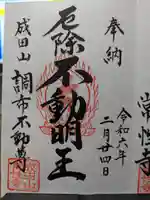 奉納
令和六年
二月廿四日
厄除
不動明王
成田山
調布不動尊
常性寺